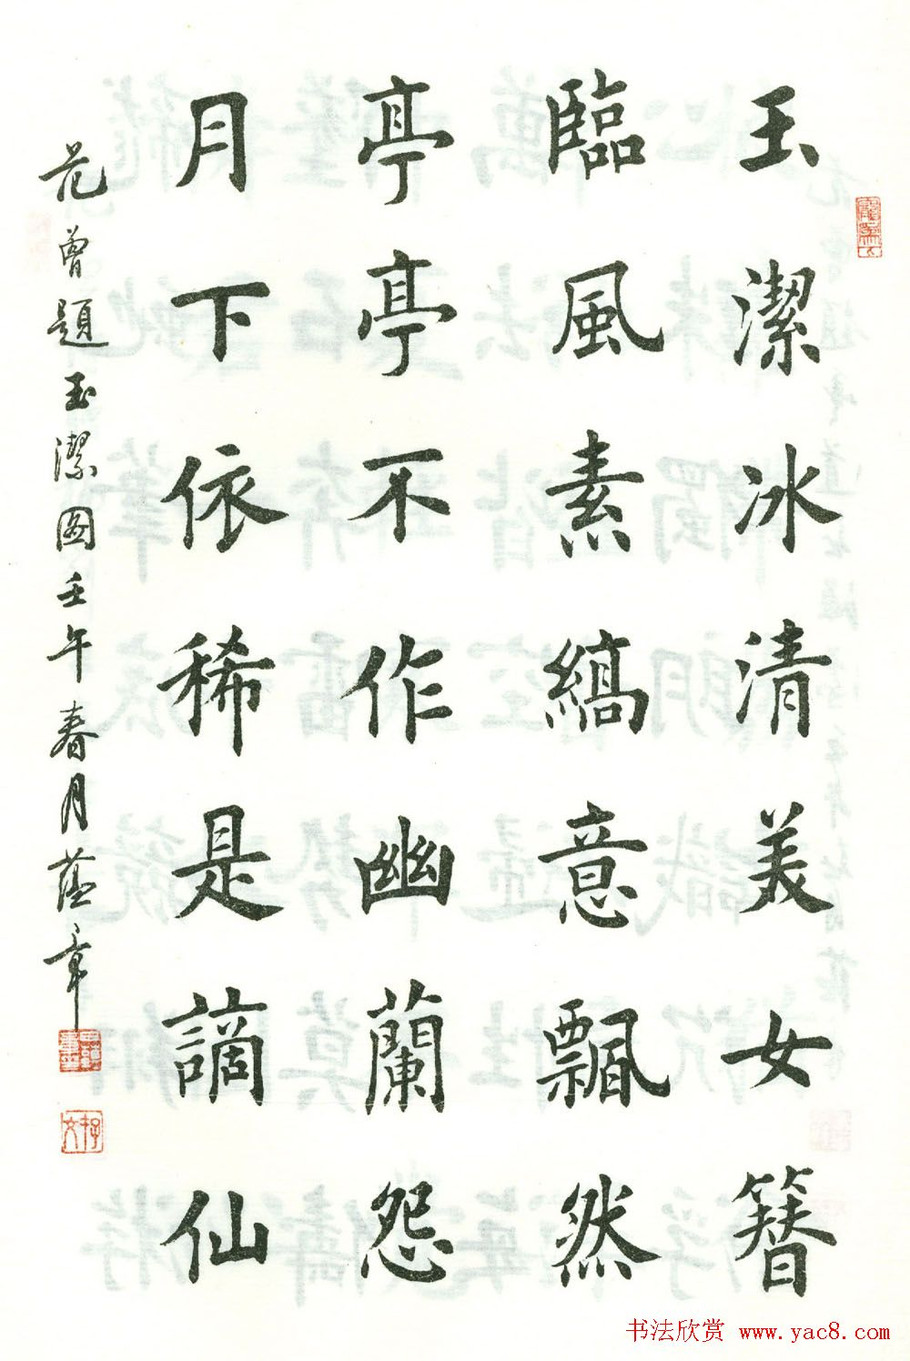 玉潔冰清美女簪
臨風素縞意飄然
亭亭不作幽蘭怨
月下依稀是謫仙
范曾題玉潔圖壬午春月蓝章
书法欣赏 www.yac8.com